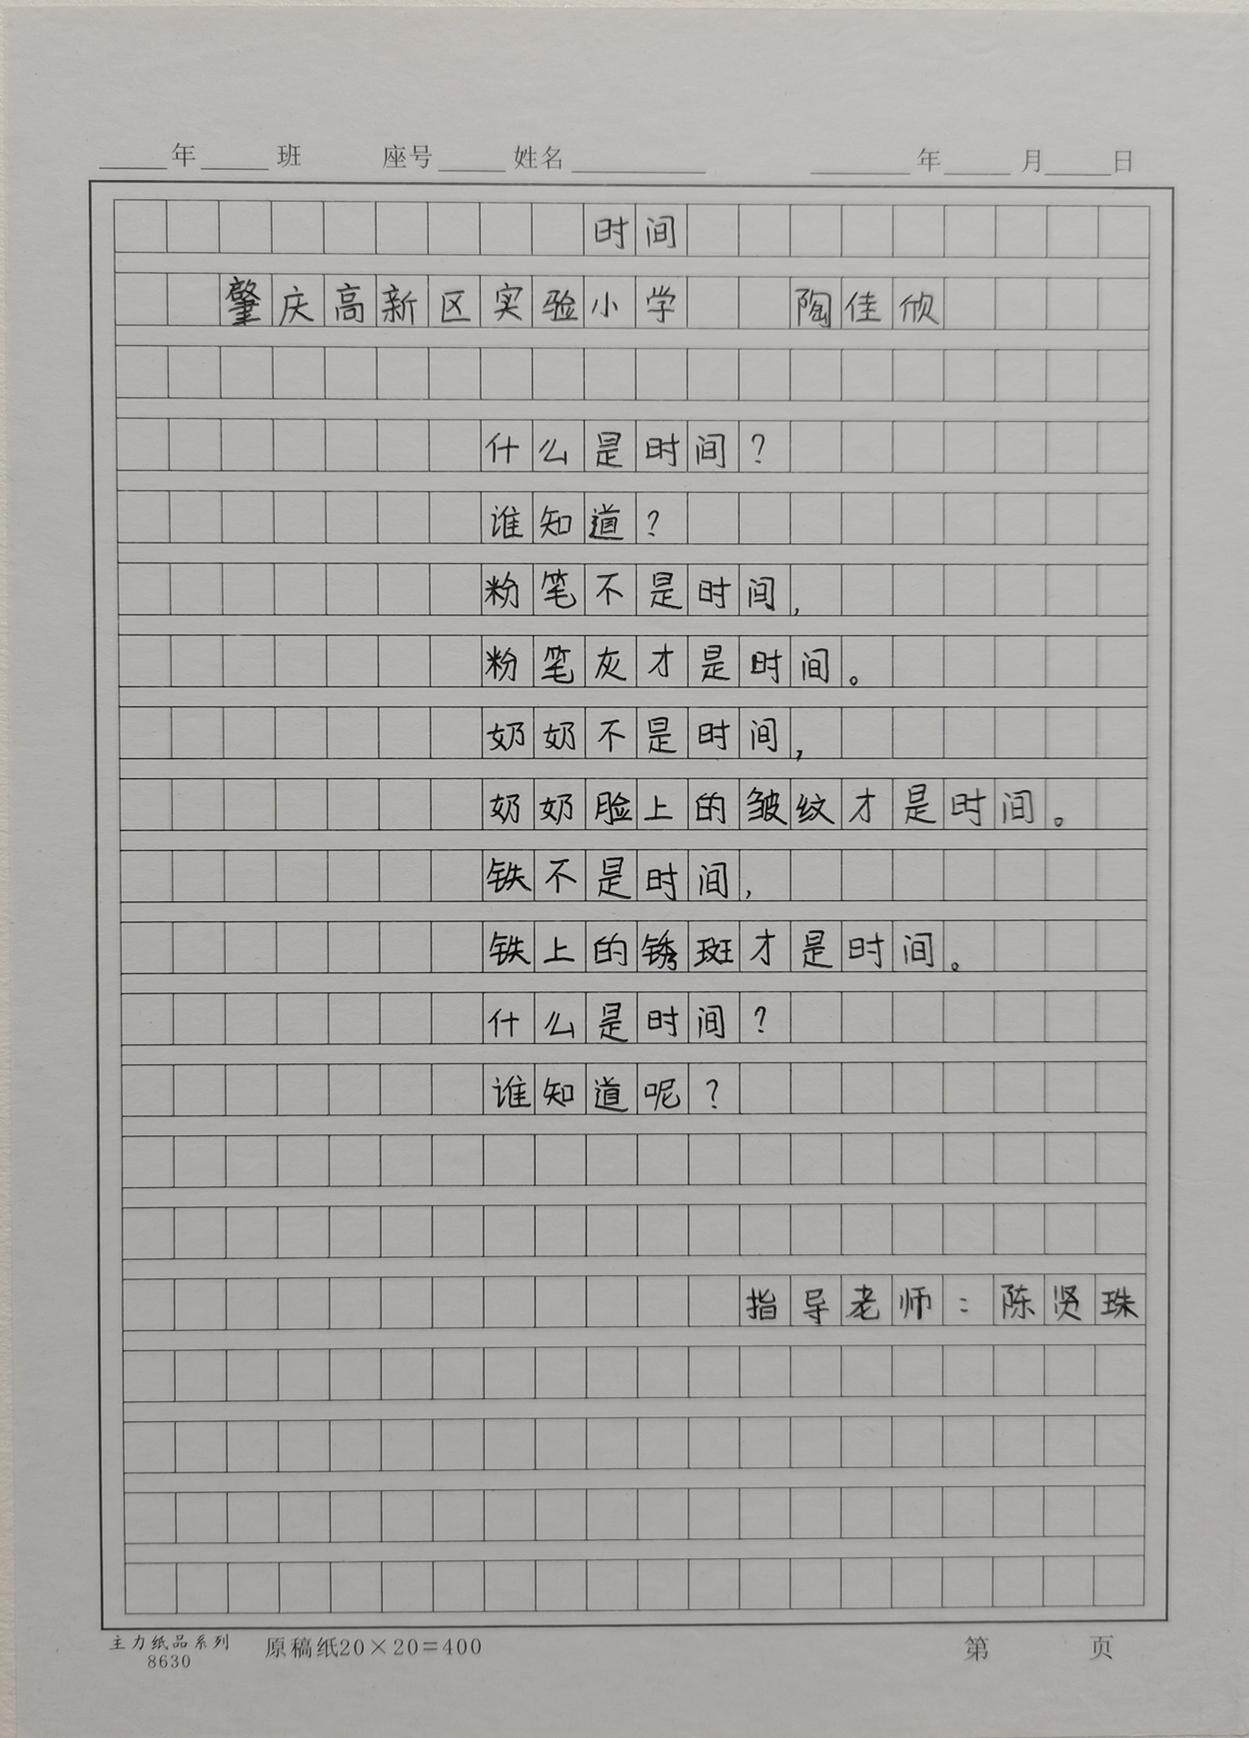 年 班 座号 姓名 年 月 日
时间
肇庆高新区实验小学 陶佳欣
什么是时间?
谁知道?
粉笔不是时间,
粉笔灰才是时间。
奶奶不是时间,
奶奶脸上的皱纹才是时间。
铁不是时间,
铁上的锈斑才是时间。
什么是时间?
谁知道呢?
指导老师:陈贤珠
主力纸品系列
8630
原稿纸20×20=400
第 页